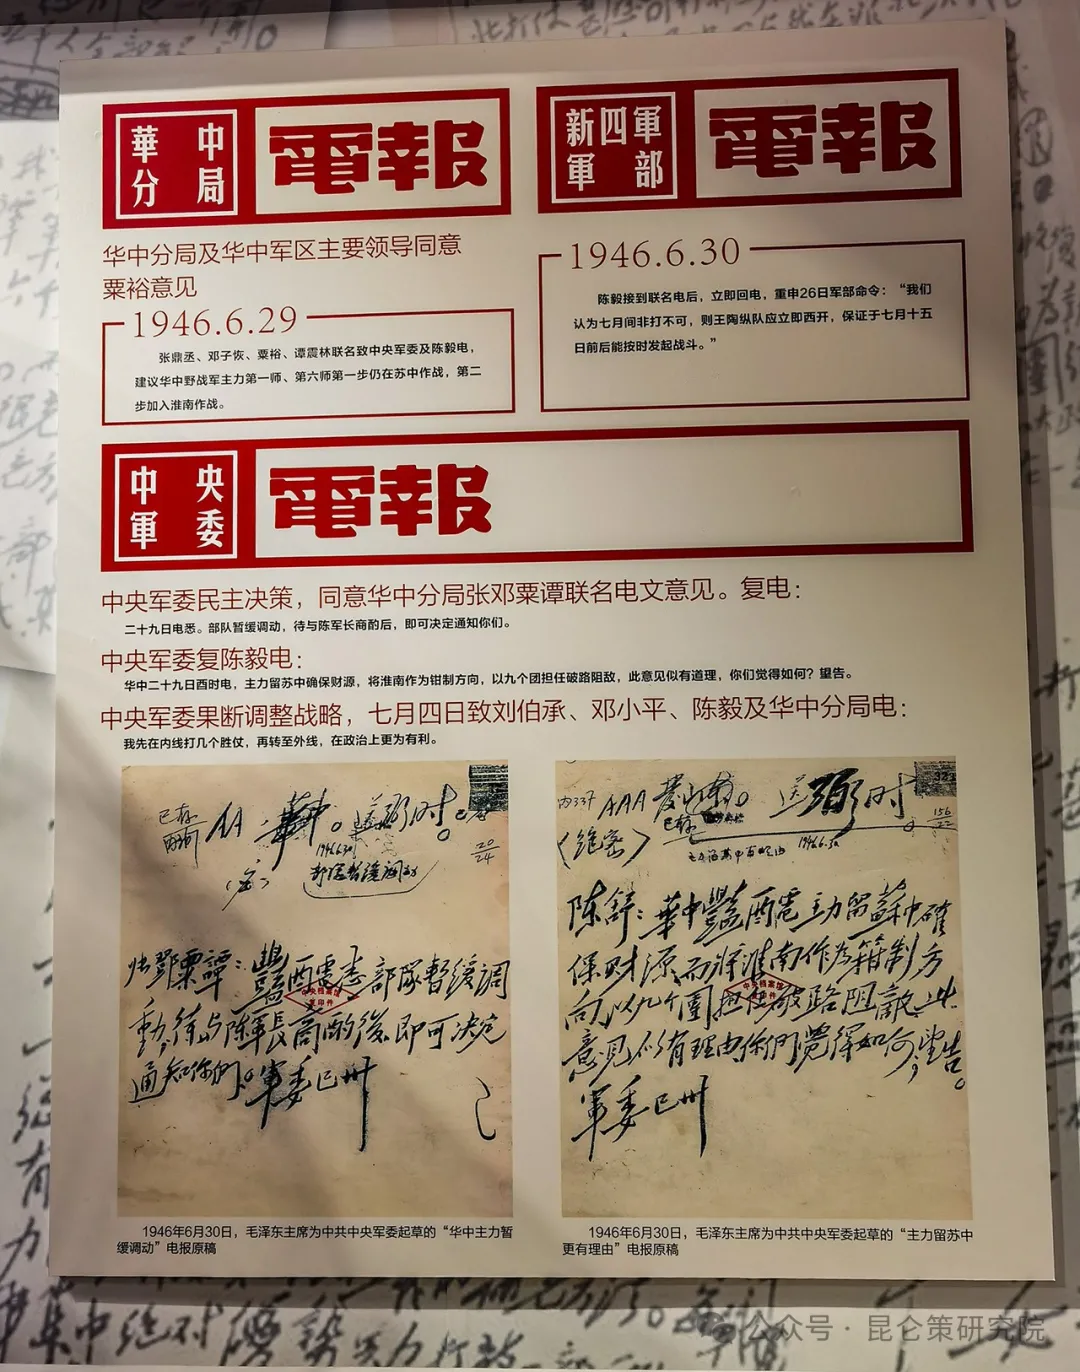 華中
分局
電報
华中分局及华中军区主要领导同意
粟裕意见
1946.6.29
张鼎丞、邓子恢、粟裕、谭震林联名致中央军委及陈毅电，
建议华中野战军主力第一师、第六师第一步仍在苏中作战，第二
步加入淮南作战。
新四軍
軍部
電報
1946.6.30
陈毅接到联名电后，立即回电，重申26日军部命令：“我们
认为七月间非打不可，则王陶纵队应立即西开，保证于七月十五
日前后能按时发起战斗。”
中央
軍委
電報
中央军委民主决策，同意华中分局张邓粟谭联名电文意见。复电：
二十九日电悉。部队暂缓调动，待与陈军长商酌后，即可决定通知你们。
中央军委复陈毅电：
华中二十九日酉时电，主力留苏中确保财源，将淮南作为钳制方向，以九个团担任破路阻敌，此意见似有道理，你们觉得如何？望告。
中央军委果断调整战略，七月四日致刘伯承、邓小平、陈毅及华中分局电：
我先在内线打几个胜仗，再转至外线，在政治上更为有利。
AA 華中。
1946.6.30
部隊暫緩調動
张鄧粟譚：艷酉電悉部隊暫緩調
動，待与陈軍長商酌後即可决定
通知你們。軍委已卅
中央档案馆
复印件
1946年6月30日，毛泽东主席为中共中央军委起草的“华中主力暂
缓调动”电报原稿
AAA
（绝密）
1946.6.30
陈舒：華中艷酉電主力留蘇中確
保財源而将淮南作为箝制方
向以九个團担任破路阻敵，此
意見似有理由你們覺得如何，望告。
軍委已卅
中央档案馆
复印件
1946年6月30日，毛泽东主席为中共中央军委起草的“主力留苏中
更有理由”电报原稿
公众号·昆仑策研究院